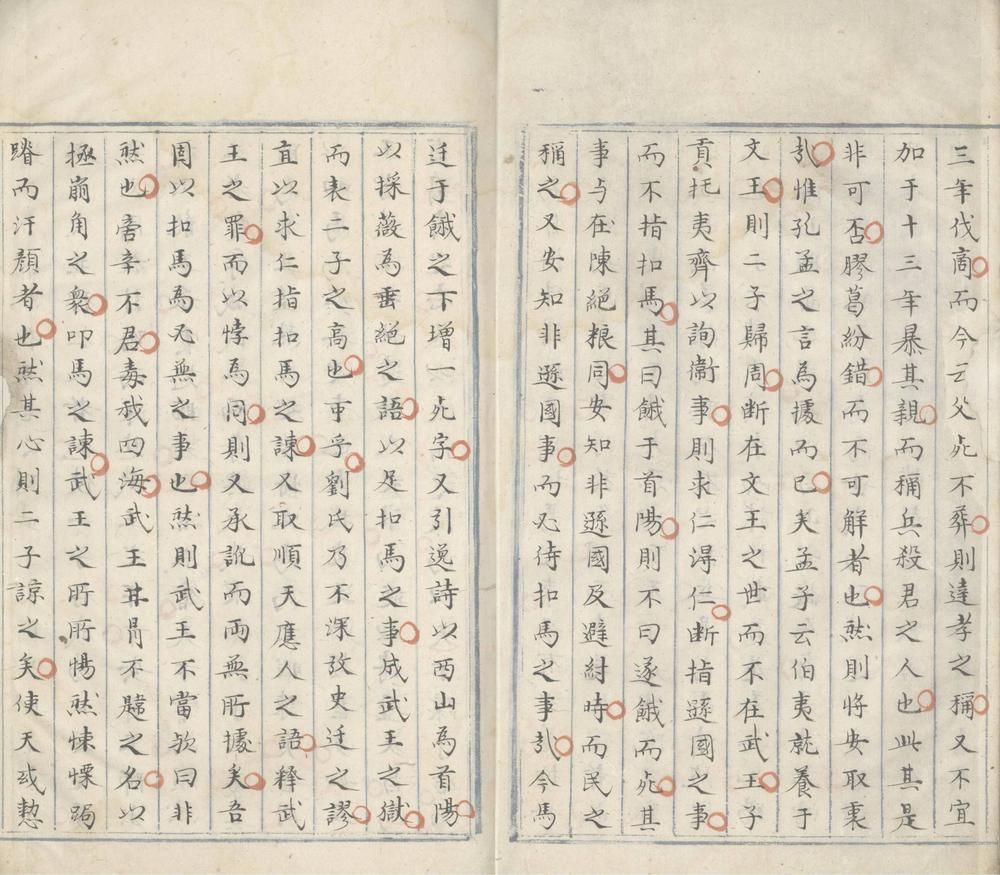 三年伐商而今云父死不葬則達孝之稱又不宜
加于十三年暴其親而稱兵殺君之人也此其是
非可否膠葛紛錯而不可解者也然則將安取衷
㢤惟孔孟之言為據而已矣孟子云伯夷就養于
文王則二子歸周断在文王之世而不在武王子
貢托夷齊以詢衞事則求仁淂仁断指遜國之事
而不指扣馬其曰餓于首陽則不曰遂餓而死其
事与在陳絕粮同安知非遜國及避紂時而民之
稱之又安知非遜國事而必待扣馬之事㢤今馬
迁于餓之下增一死字又引逸詩以西山為首陽
以採薇為垂絕之語以足扣馬之事成武王之獄
而表二子之高也可乎劉氏乃不深攷史迁之謬
直以求仁指扣馬之諫又取順天應人之語释武
王之罪而以悖為同則又承訛而両無所據矣吾
固以扣馬為必無之事也然則武王不當欤曰非
然也啻辛不君毒我四海武王其昌不韙之名以
拯崩角之衆叩馬之諫武王之所惕然悚慄跼
蹐而汗顔者也然其心則二子諒之矣使天或憖